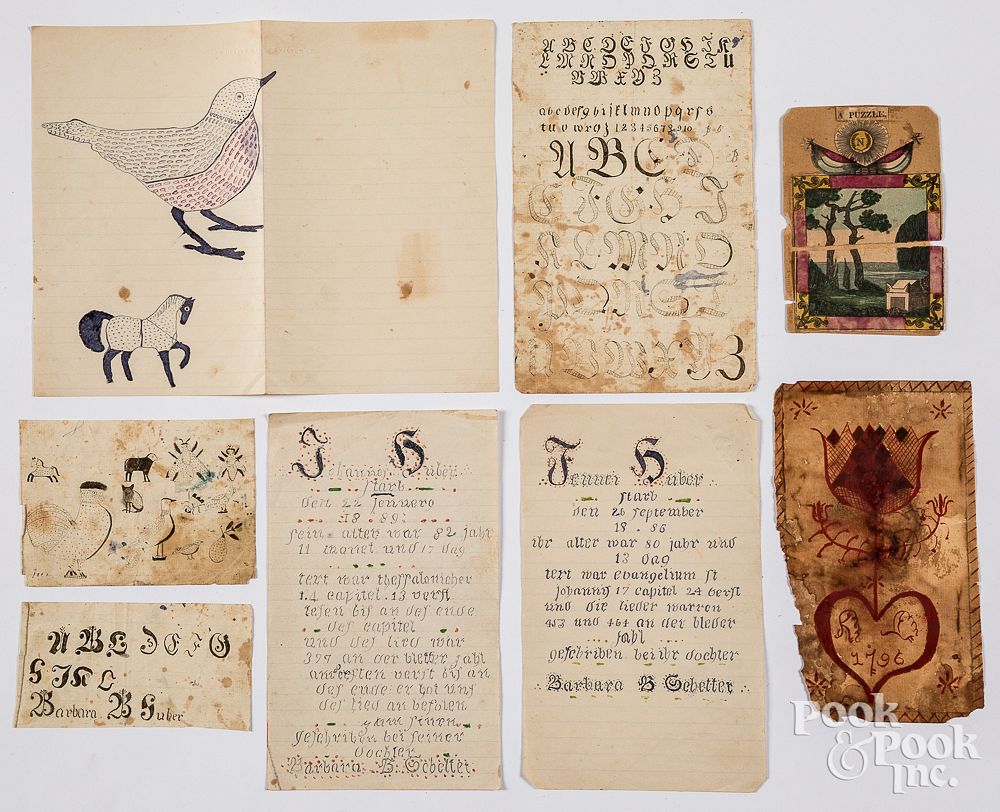 A B C D E F G H I K
L M N O P Q R S T U
V W X Y Z
a b c d e f g h i j k l m n o p q r s
t u v w x z 1 2 3 4 5 6 7 8 9 10
A B C
E F G H J
K L M N O
U V W X Y Z
A PUZZLE.
N
A B C D E F G
H I K L
Barbara B Huber
J H
Johannes Huber
starb
den 22 Jennero
18 . 89
sein alter war 82 jahr
11 monet und 17 dag
text war thessalonicher
1.4 capitel . 13 verst
lesen bis an des ende
des capitel
und des lied war
377 an der bletter zahl
des lied an befohlen
geschriben bei seiner
dochter
Barbara B. Sebetter
F H
Fenner Huber
starb
den 26 september
18 . 86
ihr alter war 80 jahr und
13 dag
text war evangelium st
johanns 17 capitel 24 verst
und die lieder warren
453 und 464 an der bleder
zahl
geschriben bei ihr dochter
Barbara B Sebetter
1796
POOK
& POOK
INC.